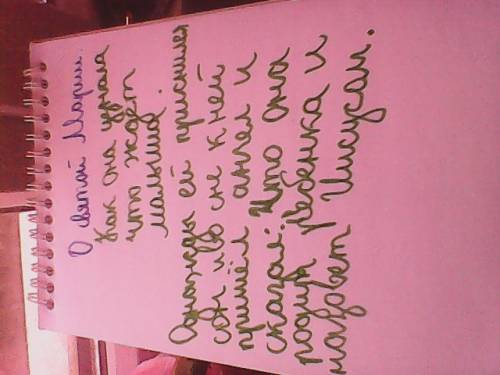 О святой Марии.
Как она узнала
что ждёт
малыша.
Однажды ей приснился
сон и во сне к ней
пришёл ангел и
сказал: Что она
родит ребенка и
назовет Иисусам.